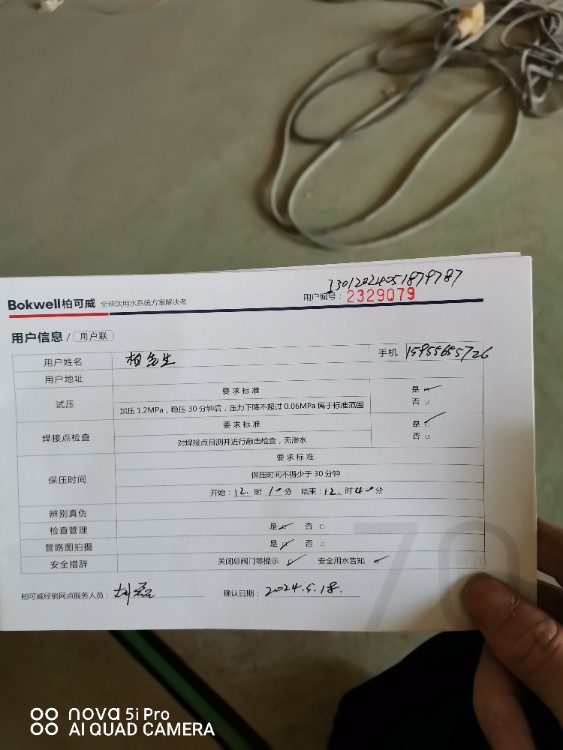 13012024051879787
Bokwell柏可威 全球饮用水系统方案解决者
用户编号: 2329079
用户信息 / 用户联
用户姓名 柏先生 手机 15955655726
用户地址
试压 要求标准 是 ✓
加压1.2MPa，稳压30分钟后，压力下降不超过0.06MPa属于标准范围 否 □
焊接点检查 要求标准 是 ✓
对焊接点目测并进行敲击检查，无渗水 否 □
保压时间 要求标准
保压时间不得少于30分钟
开始: 12. 时 10 分 结束: 12. 时 40 分
辨别真伪
检查管理 是 ✓ 否 □
管路图拍摄 是 ✓ 否 □
安全措辞 关闭总阀门等提示 ✓ 安全用水告知 ✓
柏可威经销网点服务人员: 确认日期: 2024.5.18.
70
nova 5i Pro
AI QUAD CAMERA